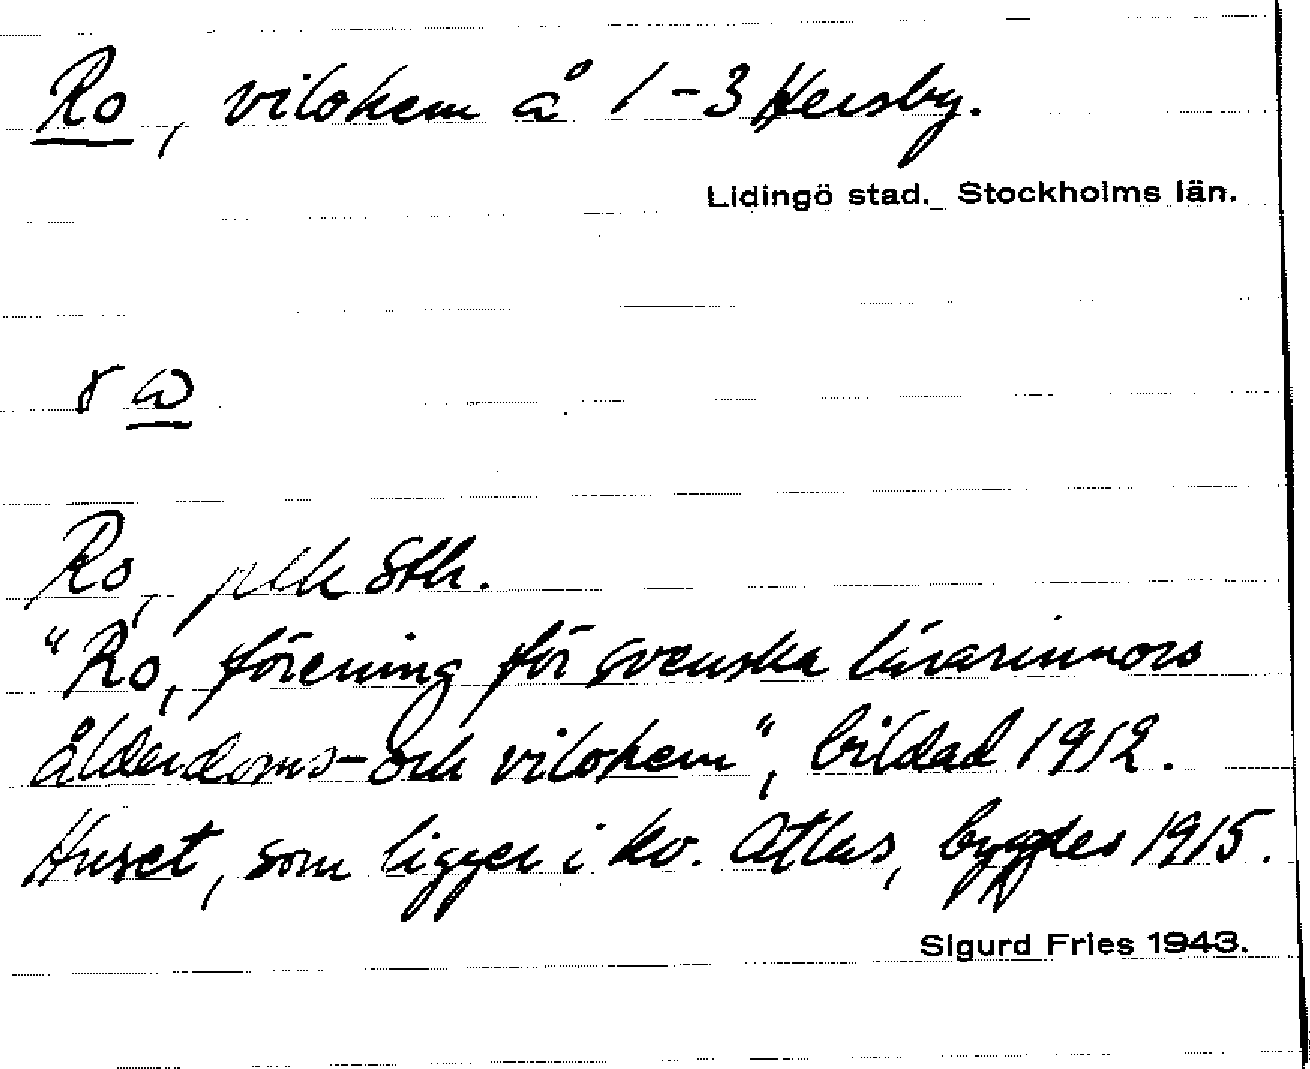 Ro, vilohem å 1-3 Hersby.
Lidingö stad. Stockholms län.
Ro, plk Sth.
"Ro, förening för svenska lärarinnors
ålderdoms- och vilohem", bildad 1912.
Huset, som ligger i kv. Atlas, byggdes 1915.
Sigurd Fries 1943.